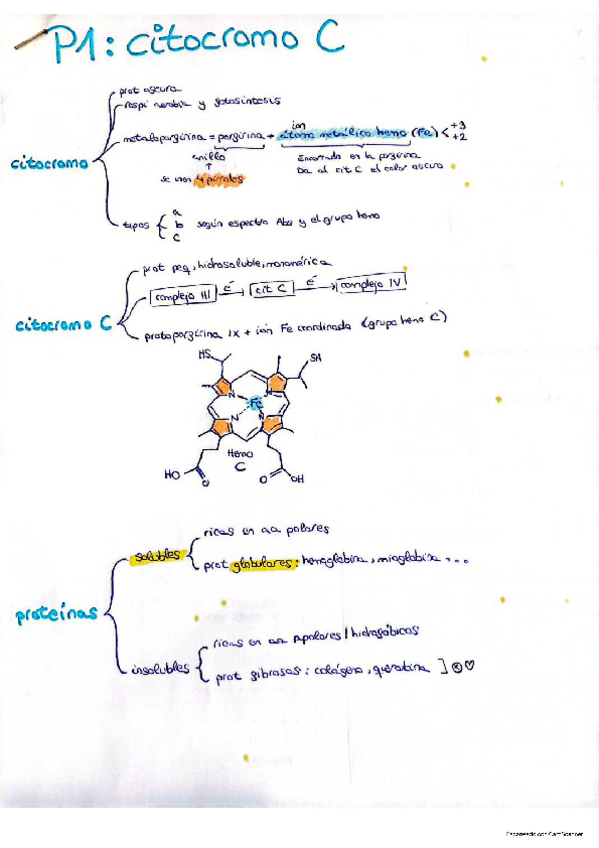 P1: citocromo C
prot oscura
respi aerobia y fotosíntesis
ion
metaloporfirina = porfirina + átomo metálico hemo (Fe) < +3
+2
citocromo
anillo
Encerrado en la porfirina
Da al cit C el color oscuro
se unen 4 pirroles
a
tipos { b según espectro Abs y el grupo hemo
c
prot peq, hidrosoluble, monomérica
complejo III e⁻→ cit C e⁻→ complejo IV
citocromo C
protoporfirina IX + ión Fe coordinado (grupo hemo C)
HS SH
N N
Fe
N N
Hemo
C
HO O O OH
ricas en aa polares
solubles
prot globulares: hemoglobina, mioglobina, ...
proteínas
ricas en aa apolares / hidrofóbicos
insolubles
prot fibrosas: colágeno, queratina ]
Escaneado con CamScanner